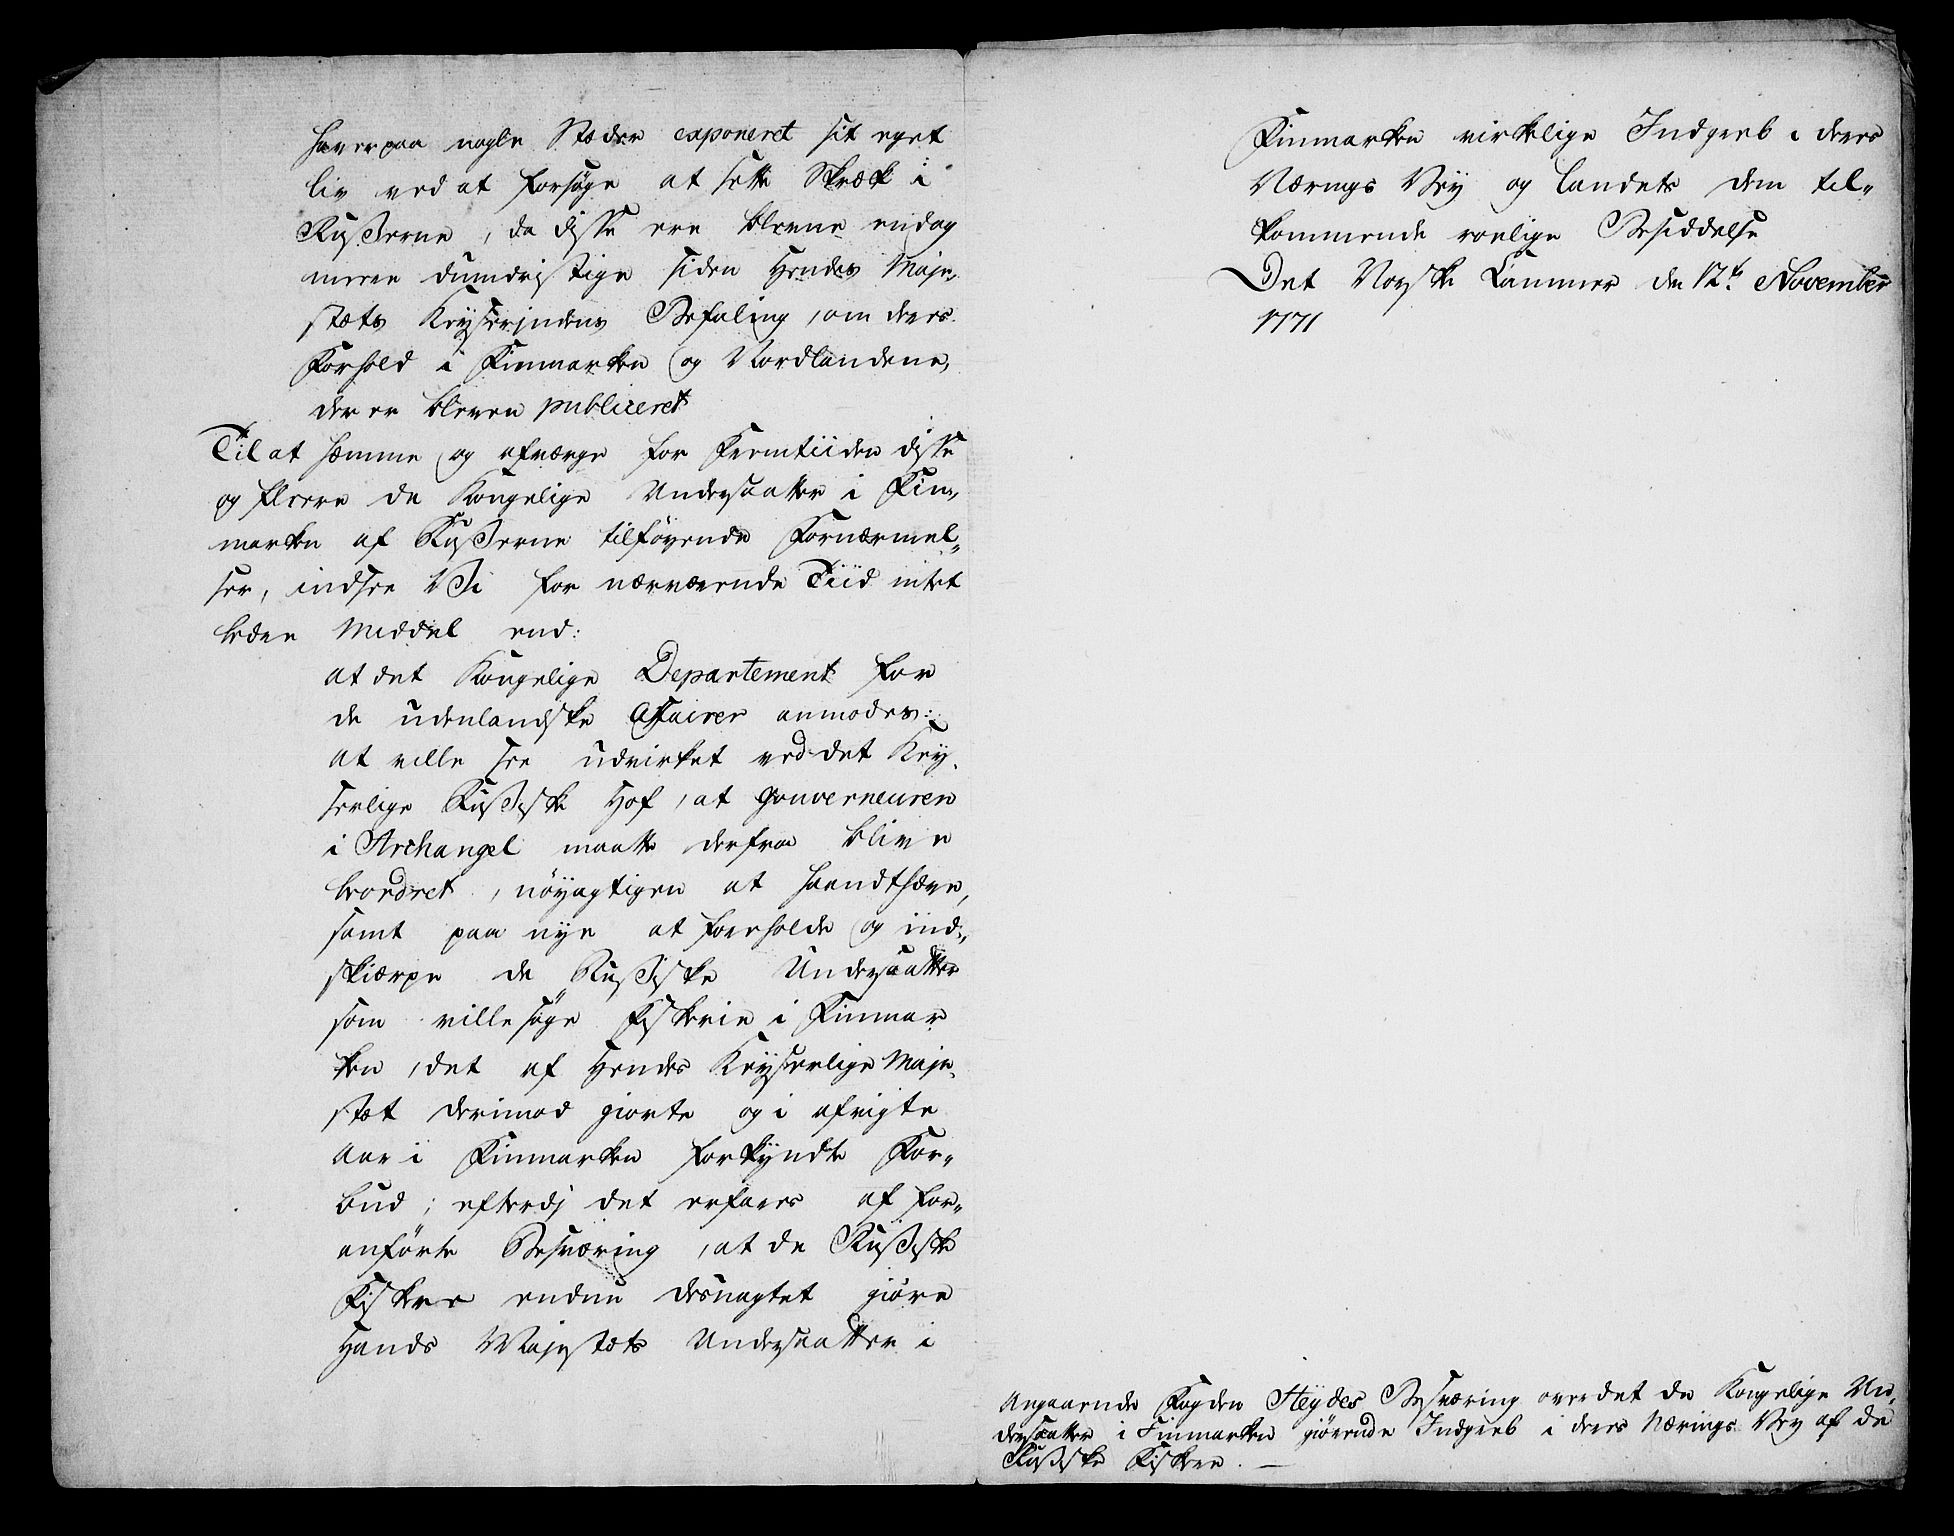 haver paa nogle Stæder exponeret sit eget
liv ved at forsøge at sette Skræk i
Russerne, da disse ere blevne endog
meere dumdristige siden Hendes Maje-
stæts Keyserindens Befaling, om deres
Forhold i Finmarken og Nordlandene,
der er bleven publiceret
Til at hæmme og afværge for Fremtiiden disse
og fleere de Kongelige Undersaatter i Fin-
marken af Russerne tilføyende Fornærmel-
ser, indsee Vi for nærværende Tiid intet
bedre Middel end:
at det Kongelige Departement for
de udenlandske Affairer anmodes:
at ville see udvirket ved det Key-
serlige Russiske Hof, at Gouverneuren
i Archangel maatte derfra blive
beordret, nöyagtigen at haandthæve,
samt paa nye at foreholde og ind-
skiærpe de Russiske Undersaatter
som ville søge Fiskerie i Finmar
ken, det af Hendes Keyserlige Maje-
stæt derimod giorte og i afvigte
Aar i Finmarken forkyndte For-
bud; efterdj det erfares af for-
anførte Besværing, at de Russiske
Fiskere endnu desuagtet giøre
Hands Majestæts Undersaatter i
Finmarken virkelige Indgreb i deres
Nærings Vey og Landets dem til-
kommende roelige Besiddelse
Det Norske Cammer den 12te November
1771
Angaaende Fogden Heydes Besværing over det de Kongelige Un-
dersaatter i Finmarken giörende Indgreb i deres Nærings Vey af de
Russiske Fiskere.